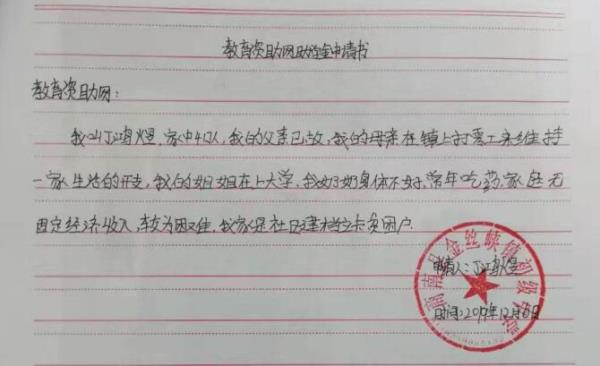 教育资助网助学金申请书
教育资助网：
我叫江鸿煜，家中4口人，我的父亲已故，我的母亲在镇上打零工来维持
一家生活的开支，我的姐姐在上大学，我奶奶身体不好，常年吃药，家庭无
固定经济收入，较为困难，我家是社区建档立卡贫困户。
商南县金丝峡镇初级中学
申请人：江鸿煜
时间：2019年12月6日